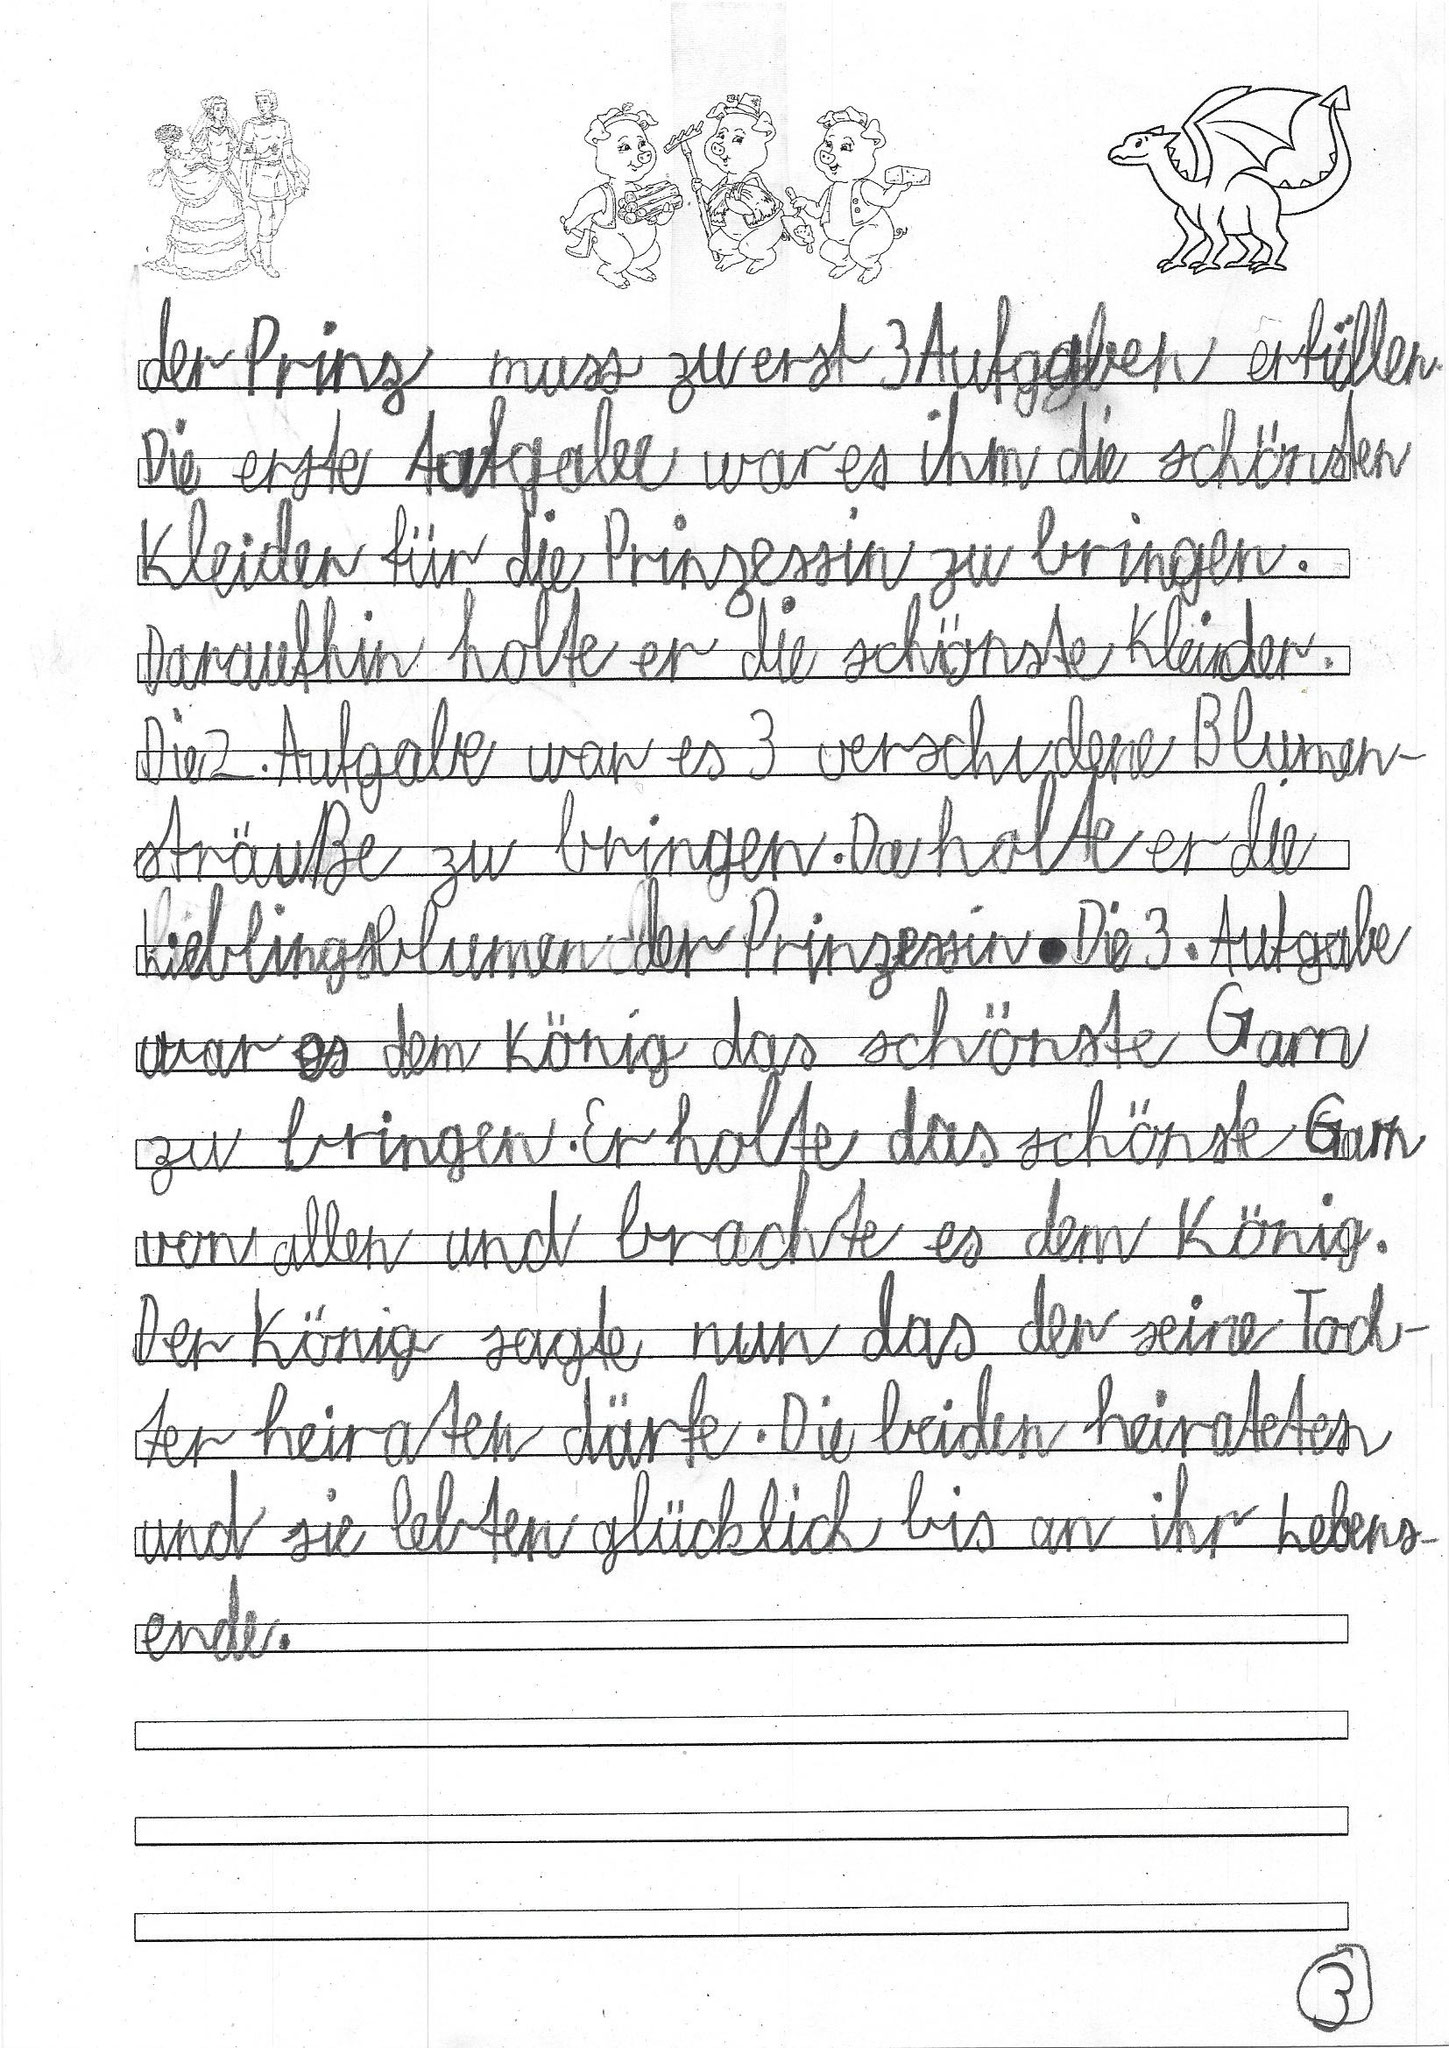 der Prinz muss zuerst 3 Aufgaben erfüllen.
Die erste Aufgabe war es ihm die schönsten
Kleider für die Prinzessin zu bringen.
Daraufhin holte er die schönste Kleider.
Die 2. Aufgabe war es 3 verschidene Blumen-
sträuße zu bringen. Da holte er die
Lieblingsblumen der Prinzessin. Die 3. Aufgabe
war es dem König das schönste Garn
zu bringen. Er holte das schönste Garn
von allen und brachte es dem König.
Der König sagte nun das der seine Toch-
ter heiraten därfe. Die beiden heirateten
und sie lebten glücklich bis an ihr Lebens-
ende.
3